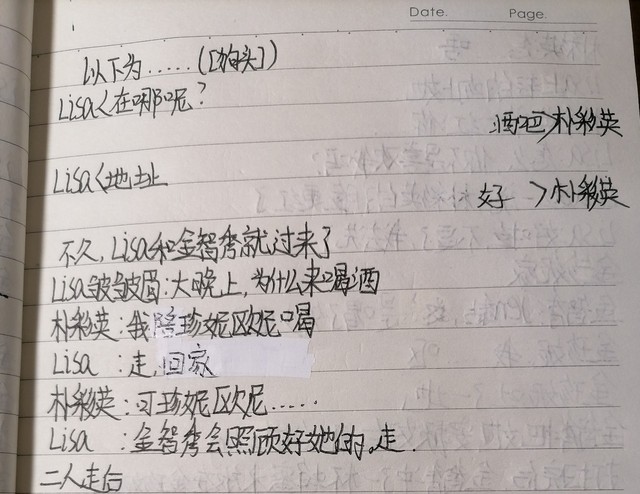 Date.
Page.
以下为……([狗头])
Lisa<在哪呢?
酒吧>朴彩英
Lisa<地址
好 >朴彩英
不久,Lisa和金智秀就过来了
Lisa皱皱眉:大晚上,为什么来喝酒
朴彩英:我陪珍妮欧妮喝
Lisa :走,回家
朴彩英:可珍妮欧尼……
Lisa :金智秀会照顾好她的。走.
二人走后